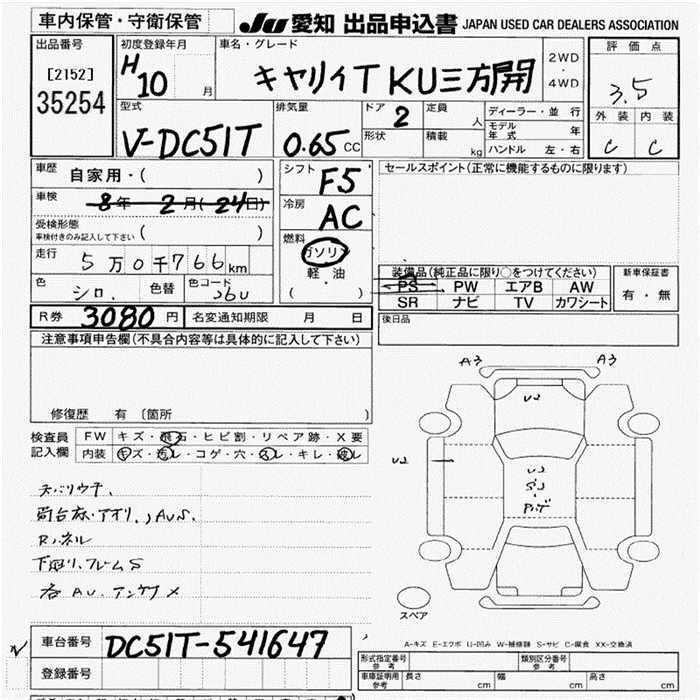 車内保管・守衛保管
JU 愛知 出品申込書 JAPAN USED CAR DEALERS ASSOCIATION
出品番号
[2152]
35254
初度登録年月
H10 月
車名・グレード
キャリイT KU三方開
2WD
・
4WD
評価点
3.5
外装 内装
C C
型式
V-DC51T
排気量
0.65 CC
ドア 2
定員 人
形状
積載 kg
ディーラー・並行
モデル年式 年
ハンドル 左・右
車歴 自家用・( )
車検 8年 2月(24日)
受検形態
車検付きのみ記入して下さい ( )
走行 5万0千766km
色 シロ. 色替 色コード 26U
シフト F5
冷房 AC
燃料
ガソリン
・
軽油
( )
セールスポイント(正常に機能するものに限ります)
装備品(純正品に限り○をつけてください)
PS PW エアB AW
SR ナビ TV カワシート
新車保証書
有・無
R券 3080円 名変通知期限 月 日
後日品
注意事項申告欄(不具合内容等は具体的に記入して下さい)
修復歴 有 〔箇所 〕
検査員記入欄
FW キズ・飛石・ヒビ割・リペア跡・X要
内装 キズ・汚レ・コゲ・穴・スレ・キレ・破レ
A3 A3
U2
U2
U2
S2
スペア
A-キズ E-エクボ U-凹み W-補修跡 S-サビ C-腐食 XX-交換済
車台番号 DC51T-541647
登録番号
形式指定番号 参考
類別区分番号 参考
車庫証明用 参考 長さ cm 幅 cm 高さ cm